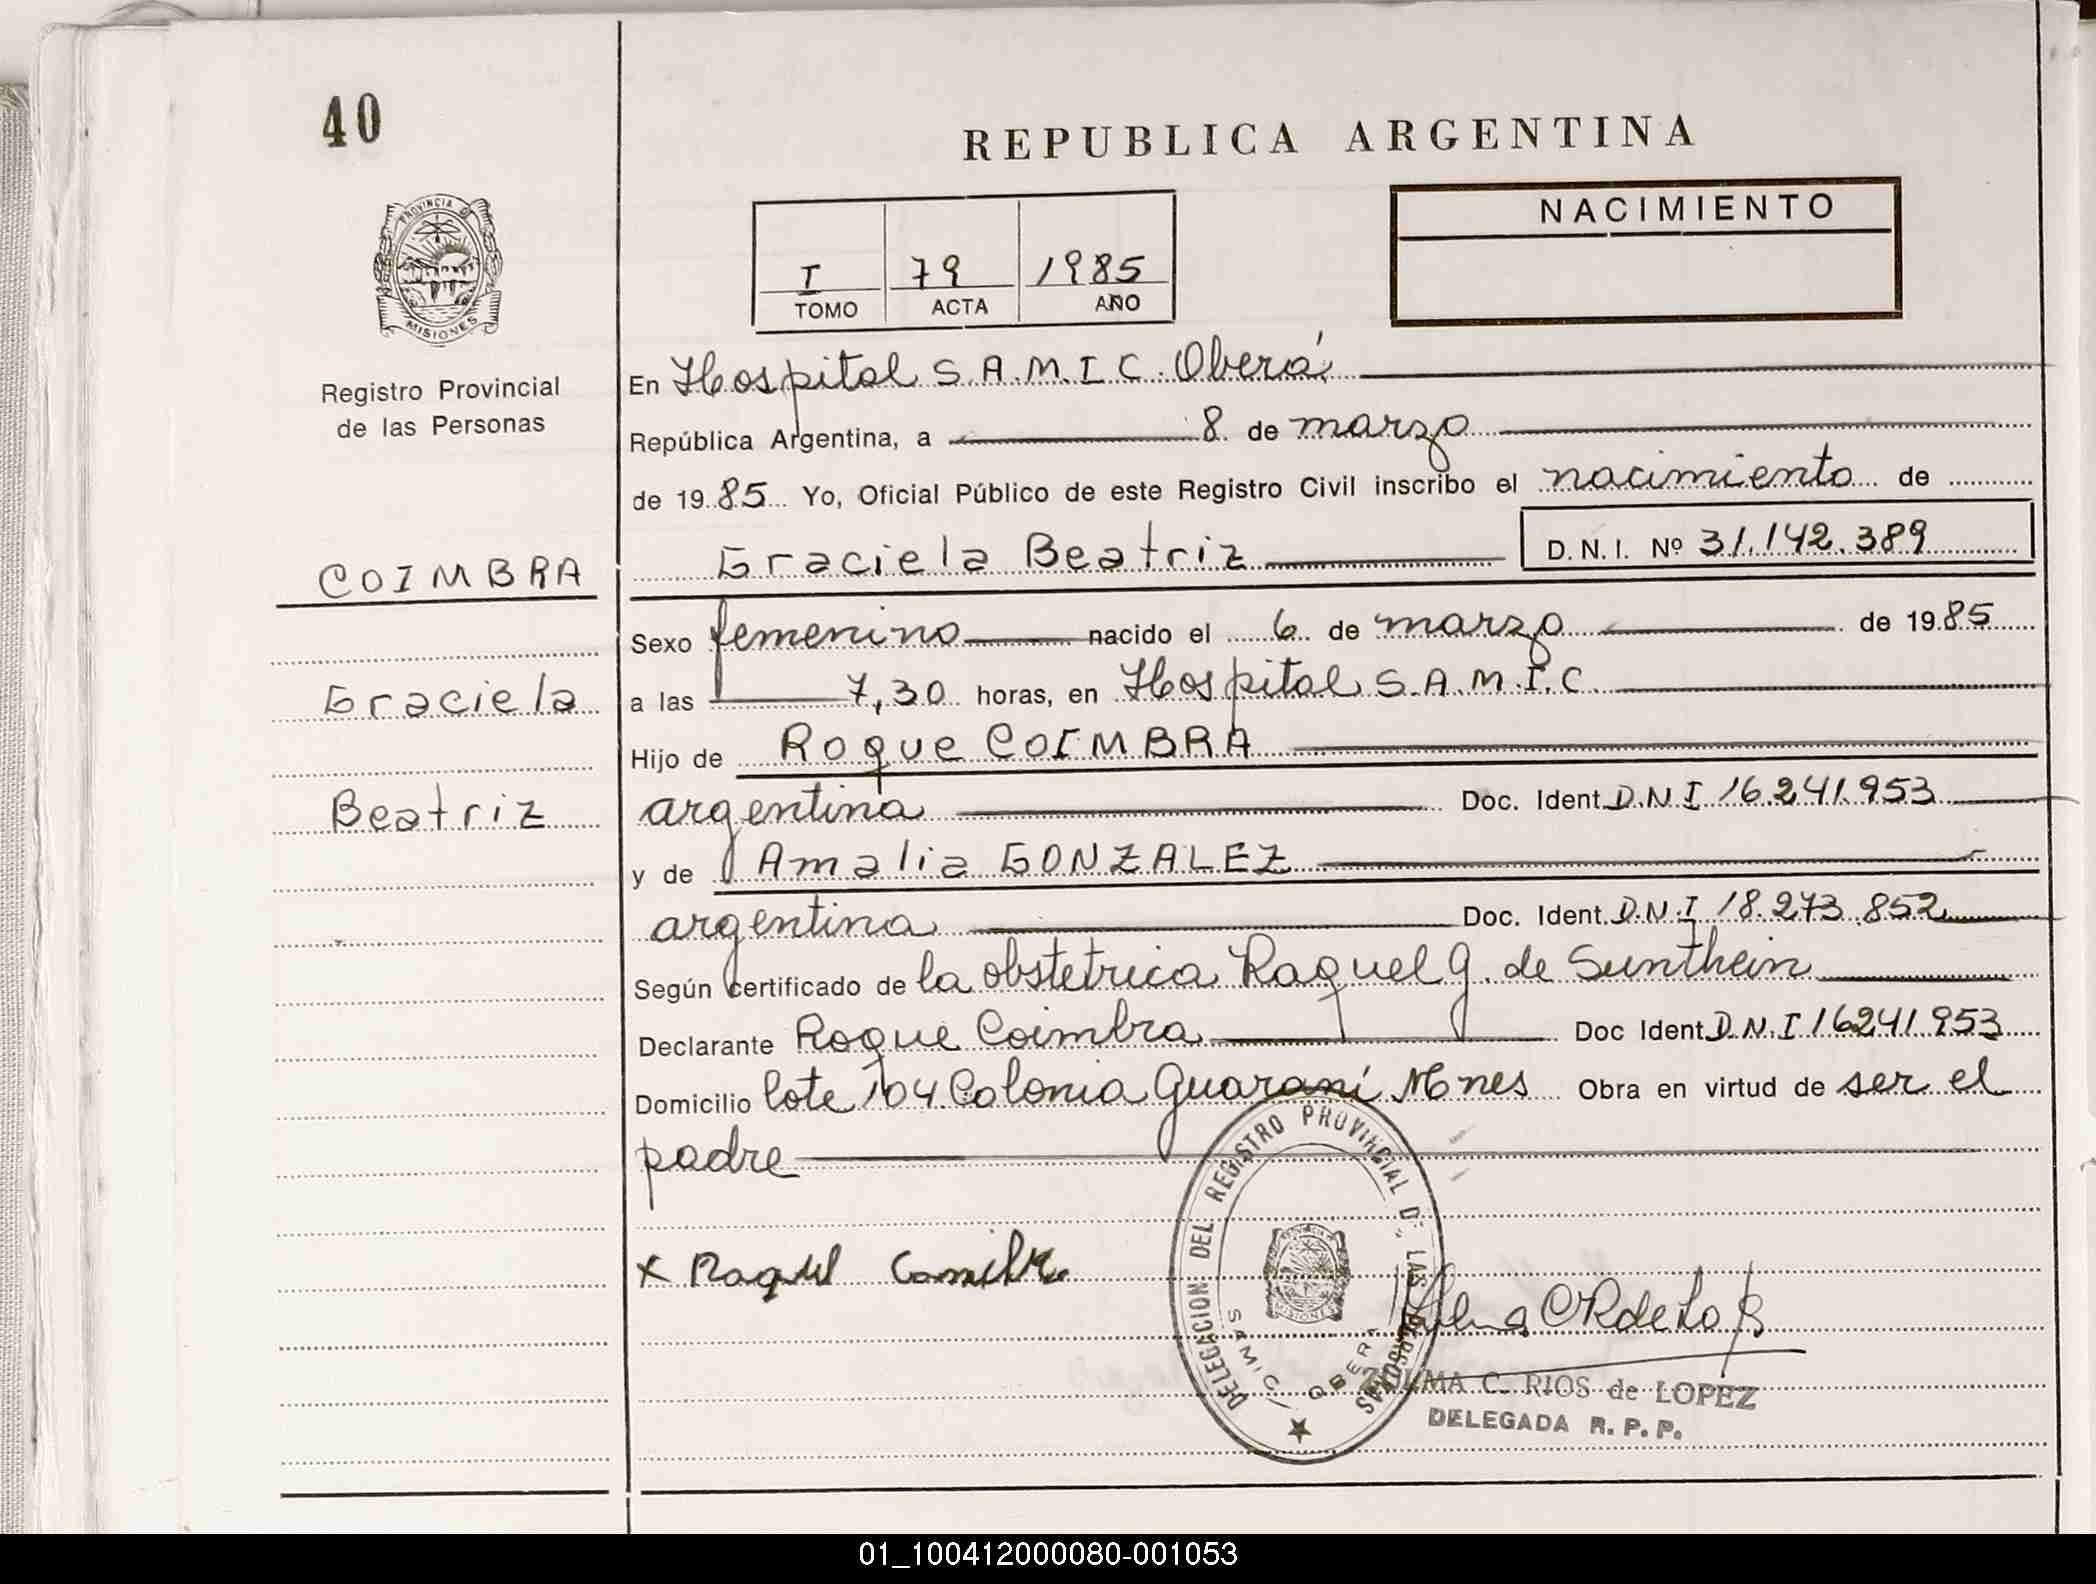 40
REPUBLICA ARGENTINA
PROVINCIA DE
MISIONES
NACIMIENTO
I 79 1985
TOMO ACTA AÑO
Registro Provincial
de las Personas
En Hospital S.A.M.I.C. Oberá
República Argentina, a 8 de marzo
de 1985 Yo, Oficial Público de este Registro Civil inscribo el nacimiento de
Graciela Beatriz D.N.I. Nº 31.142.389
COIMBRA
Sexo femenino nacido el 6 de marzo de 1985
Graciela
a las 7,30 horas, en Hospital S.A.M.I.C
Hijo de Roque COIMBRA
Beatriz
argentina Doc. Ident. D.N.I 16.241.953
y de Amalia GONZALEZ
argentina Doc. Ident. D.N.I 18.273.852
Según certificado de la obstetrica Raquel G. de Sunthein
Declarante Roque Coimbra Doc Ident. D.N.I 16241.953
Domicilio lote 104 Colonia Guaraní Mnes Obra en virtud de ser el
padre
x
DELEGACION DEL REGISTRO PROVINCIAL DE LAS PERSONAS
MISIONES
SAMIC OBERA
ZULMA C. RIOS de LOPEZ
DELEGADA R. P. P.
01_100412000080-001053